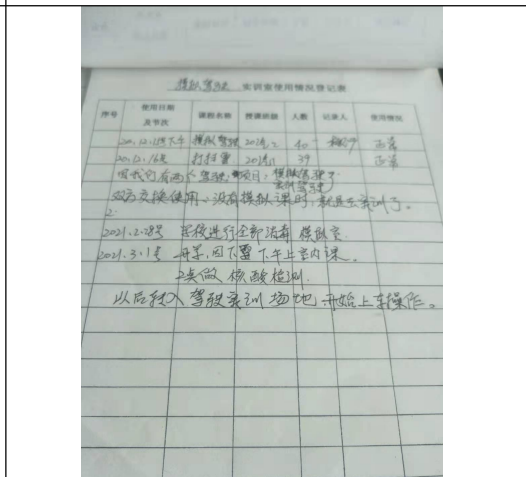 模拟驾驶 实训室使用情况登记表
序号 使用日期及节次 课程名称 授课班级 人数 记录人 使用情况
20.12.11号下午 模拟驾驶 40 正常
20.12.16号 39 正常
因我们有两个驾驶项目，模拟驾驶
实训驾驶
双方交换使用，没有模拟课时，就是在实训了。
2:
2021.2.28号 学校进行全部消毒 模拟室。
2021.3.1号 开学，因下雪下午上室内课。
2头做 核酸检测.
以后转入驾驶实训场地开始上车操作。